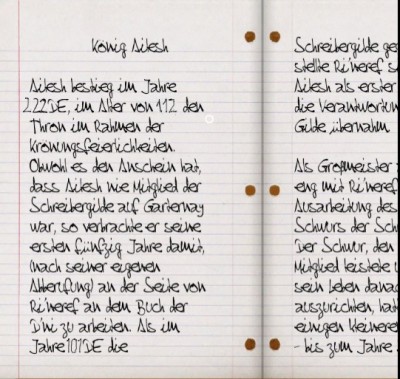 König Ailesh
Ailesh bestieg im Jahre
222DE, im Alter von 112 den
Thron im Rahmen der
Krönungsfeierlichkeiten.
Obwohl es den Anschein hat,
dass Ailesh nie Mitglied der
Schreibergilde auf Garternay
war, so verbrachte er seine
ersten fünfzig Jahre damit,
(nach seiner eigenen
Abberufung) an der Seite von
Ri'neref an dem Buch der
D'ni zu arbeiten. Als im
Jahre 101DE die
Schreibergilde ge
stellte Ri'neref s
Ailesh als erster
die Verantwortun
Gilde übernahm
Als Großmeister
eng mit Ri'neref
Ausarbeitung des
Schwurs der Sch
Der Schwur, den
Mitglied leistete u
sein Leben danac
auszurichten, hat
einigen kleinere
- bis zum Jahre